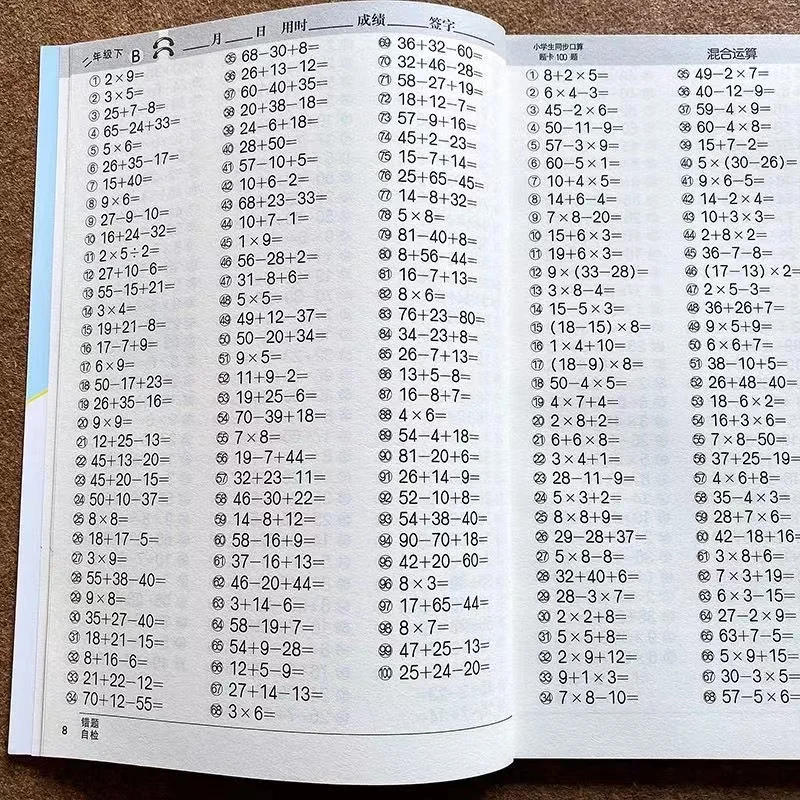 二年级下 B 月 日 用时 成绩 签字
① 2×9=
② 3×5=
③ 25+7−8=
④ 65−24+33=
⑤ 5×6=
⑥ 26+35−17=
⑦ 15+40=
⑧ 9×6=
⑨ 27−9−10=
⑩ 16+24−32=
⑪ 2×5÷2=
⑫ 27+10−6=
⑬ 55−15+21=
⑭ 3×4=
⑮ 19+21−8=
⑯ 17−7+9=
⑰ 6×9=
⑱ 50−17+23=
⑲ 26+35−16=
⑳ 9×9=
㉑ 12+25−13=
㉒ 45+13−20=
㉓ 45+20−15=
㉔ 50+10−37=
㉕ 8×8=
㉖ 18+17−5=
㉗ 3×9=
㉘ 55+38−40=
㉙ 9×8=
㉚ 35+27−40=
㉛ 18+21−15=
㉜ 8+16−6=
㉝ 21+22−12=
㉞ 70+12−55=
㉟ 68−30+8=
㊱ 26+13−12=
㊲ 60−40+35=
㊳ 20+38−18=
㊴ 24−6+18=
㊵ 28+50=
㊶ 57−10+5=
㊷ 10+6−2=
㊸ 68+23−33=
㊹ 10+7−1=
㊺ 1×9=
㊻ 56−28+2=
㊼ 31−8+6=
㊽ 5×5=
㊾ 49+12−37=
㊿ 50−20+34=
51 9×5=
52 11+9−2=
53 19+25−6=
54 70−39+18=
55 7×8=
56 19−7+44=
57 32+23−11=
58 46−30+22=
59 14−8+12=
60 58−16+9=
61 37−16+13=
62 46−20+44=
63 3+14−6=
64 58−19+7=
65 54+9−28=
66 12+5−9=
67 27+14−13=
68 3×6=
69 36+32−60=
70 32+46−28=
71 58−27+19=
72 18+12−7=
73 57−9+16=
74 45+2−23=
75 15−7+14=
76 25+65−45=
77 14−8+32=
78 5×8=
79 81−40+8=
80 8+56−44=
81 16−7+13=
82 8×6=
83 76+23−80=
84 34−23+8=
85 26−7+13=
86 13+5−8=
87 16−8+7=
88 4×6=
89 54−4+18=
90 81−20+6=
91 26+14−9=
92 52−10+8=
93 54+38−40=
94 90−70+18=
95 42+20−60=
96 8×3=
97 17+65−44=
98 8×7=
99 47+25−13=
100 25+24−20=
8
错题
自检
小学生同步口算
题卡100题
混合运算
① 8+2×5=
② 6×4−3=
③ 45−2×6=
④ 50−11−9=
⑤ 57−3×9=
⑥ 60−5×1=
⑦ 10+4×5=
⑧ 14+6−4=
⑨ 7×8−20=
⑩ 15+6×3=
⑪ 19+6×3=
⑫ 9×(33−28)=
⑬ 3×8−4=
⑭ 15−5×3=
⑮ (18−15)×8=
⑯ 1×4+10=
⑰ (18−9)×8=
⑱ 50−4×5=
⑲ 4×7+4=
⑳ 2×8+2=
㉑ 6+6×8=
㉒ 3×4+1=
㉓ 28−11−9=
㉔ 5×3+2=
㉕ 8×8+9=
㉖ 29−28+37=
㉗ 5×8−8=
㉘ 32+40+6=
㉙ 28−3×7=
㉚ 2×2+8=
㉛ 5×5+8=
㉜ 2×9+12=
㉝ 9+1×3=
㉞ 7×8−10=
㉟ 49−2×7=
㊱ 40−12−9=
㊲ 59−4×9=
㊳ 60−4×8=
㊴ 15+7−2=
㊵ 5×(30−26)=
㊶ 9×6−5=
㊷ 14−2×4=
㊸ 10+3×3=
㊹ 2+8×2=
㊺ 36−7−8=
㊻ (17−13)×2=
㊼ 2×5−3=
㊽ 36+26+7=
㊾ 9×5+9=
㊿ 6×6+7=
51 38−10+5=
52 26+48−40=
53 18−6×2=
54 16+3×6=
55 7×8−50=
56 37+25−19=
57 4×6+8=
58 35−4×3=
59 28+7×6=
60 42−18+16=
61 3×8+6=
62 7×3+19=
63 6×3−15=
64 27−2×9=
65 63+7−5=
66 5×9+15=
67 30−3×5=
68 57−5×6=